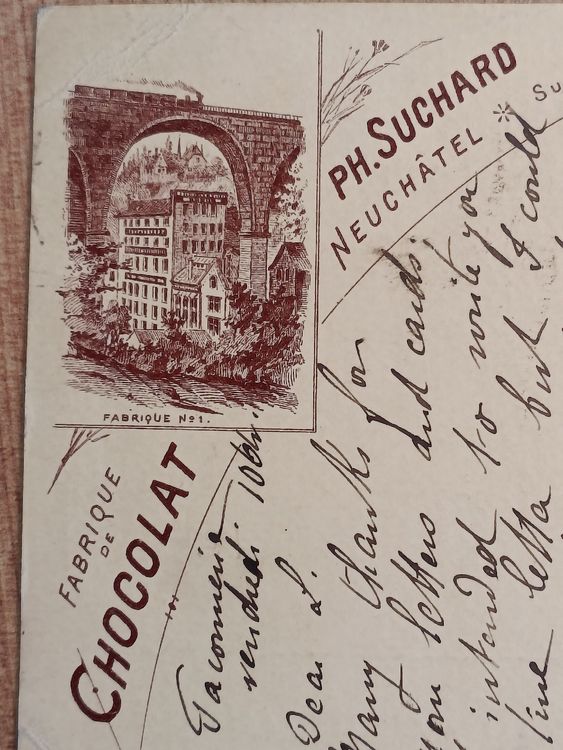 FABRIQUE No 1.
PH. SUCHARD
NEUCHÂTEL
FABRIQUE
DE
CHOCOLAT
vendredi 10h.
Dear L.
Many thanks for
your letters and cards,
intended to write you
fine letter but I could